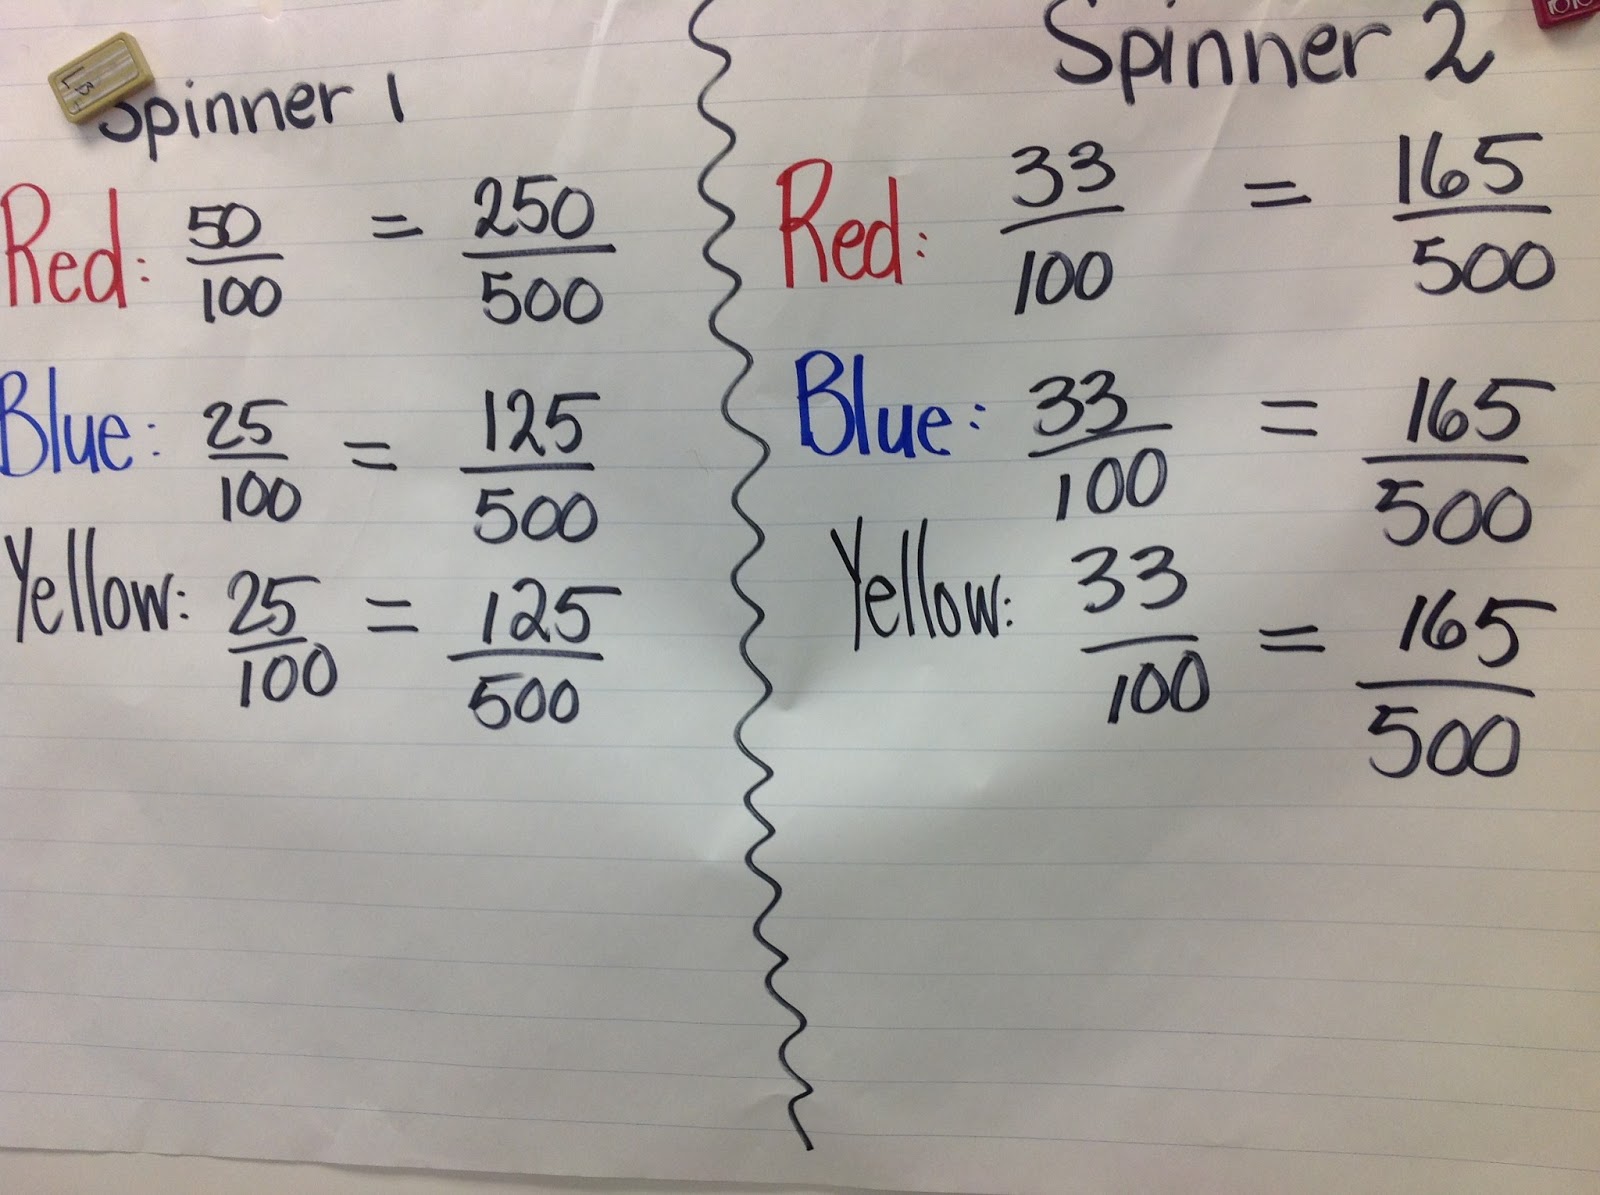 Spinner 1
Red: 50/100 = 250/500
Blue: 25/100 = 125/500
Yellow: 25/100 = 125/500
Spinner 2
Red: 33/100 = 165/500
Blue: 33/100 = 165/500
Yellow: 33/100 = 165/500